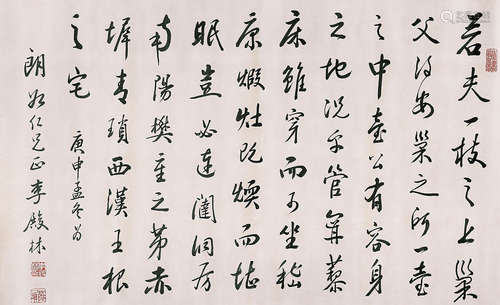 若夫一枝之上巢
父得安巢之所一壶
之中壶公有容身
之地况乎管宁藜
床虽穿而可坐嵇
康煅灶既煖而堪
眠岂必连闼洞房
南阳樊重之第赤
墀青琐西汉王根
之宅
庚申孟冬为
朗如仁兄正李殿林